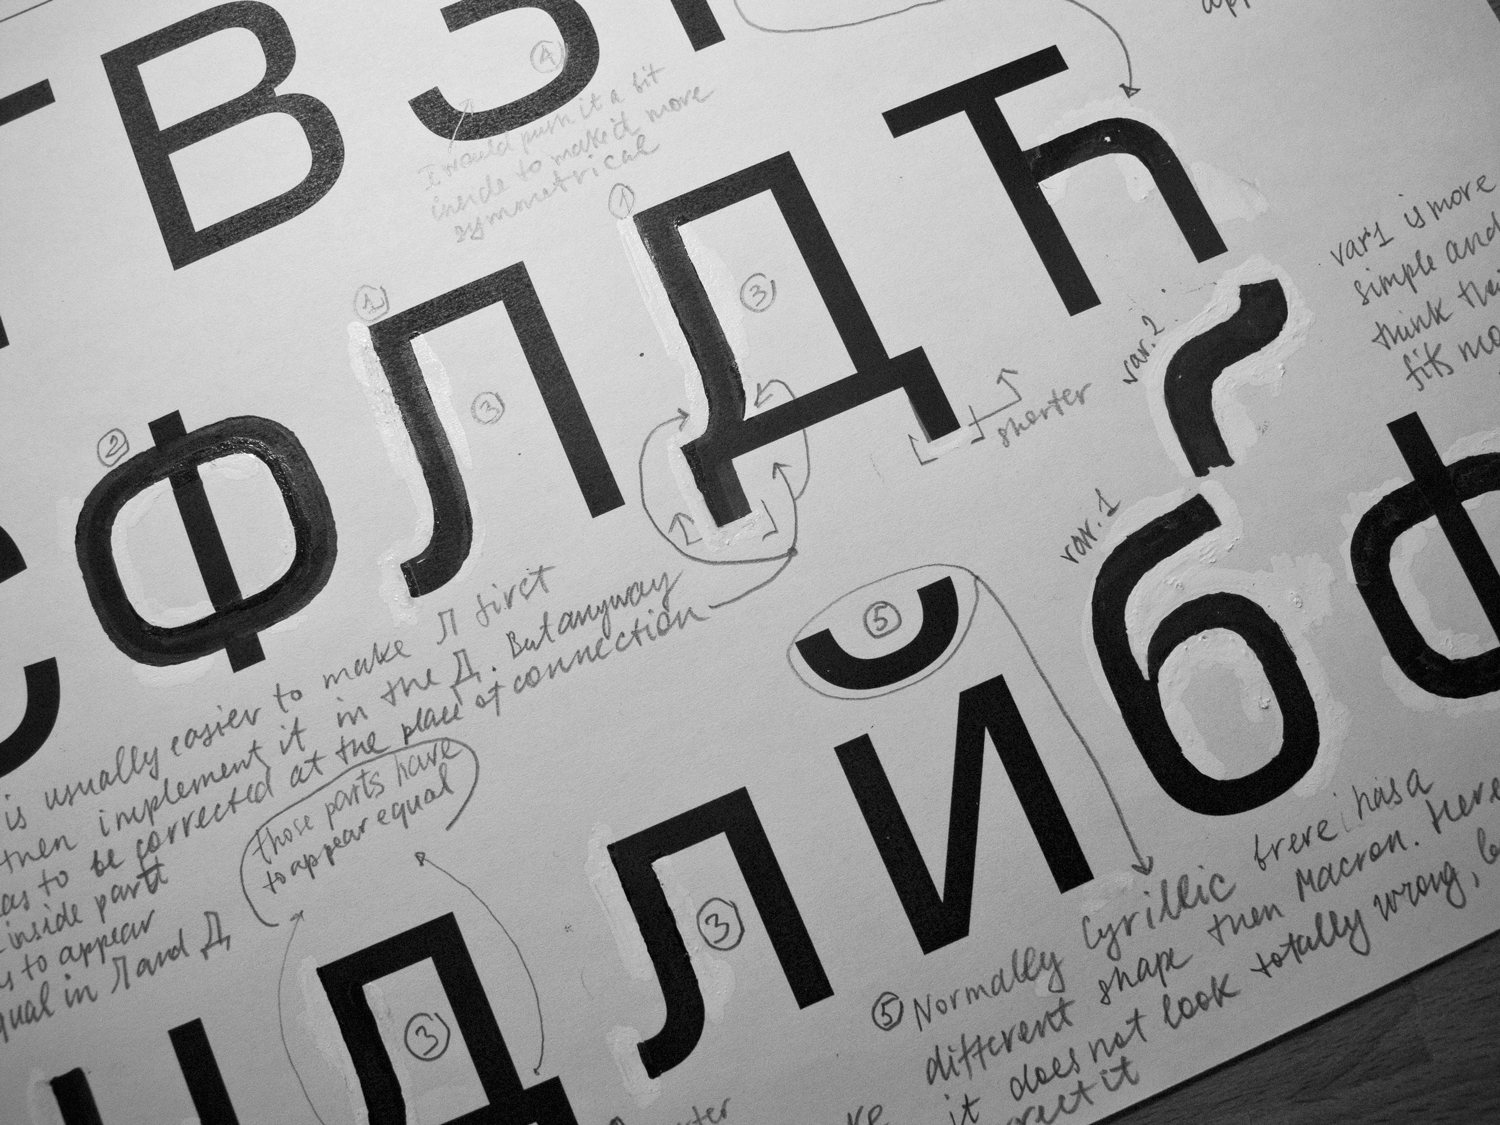 В З
4
I would push it a bit
inside to make it more
symmetrical
1
1
Ф Л Д Ћ
2
3
3
shorter
var. 2
var. 1
var1 is more
simple and
think
fits
is usually easier to make Л first
then implement it in the Д. But anyway
to be corrected at the place of connection
inside part
to appear
in Л and Д
those parts have
to appear equal
Д л й б ф
3
3
5
5 Normally Cyrillic breve has a
different shape then Macron. Here
it does not look totally wrong,
it